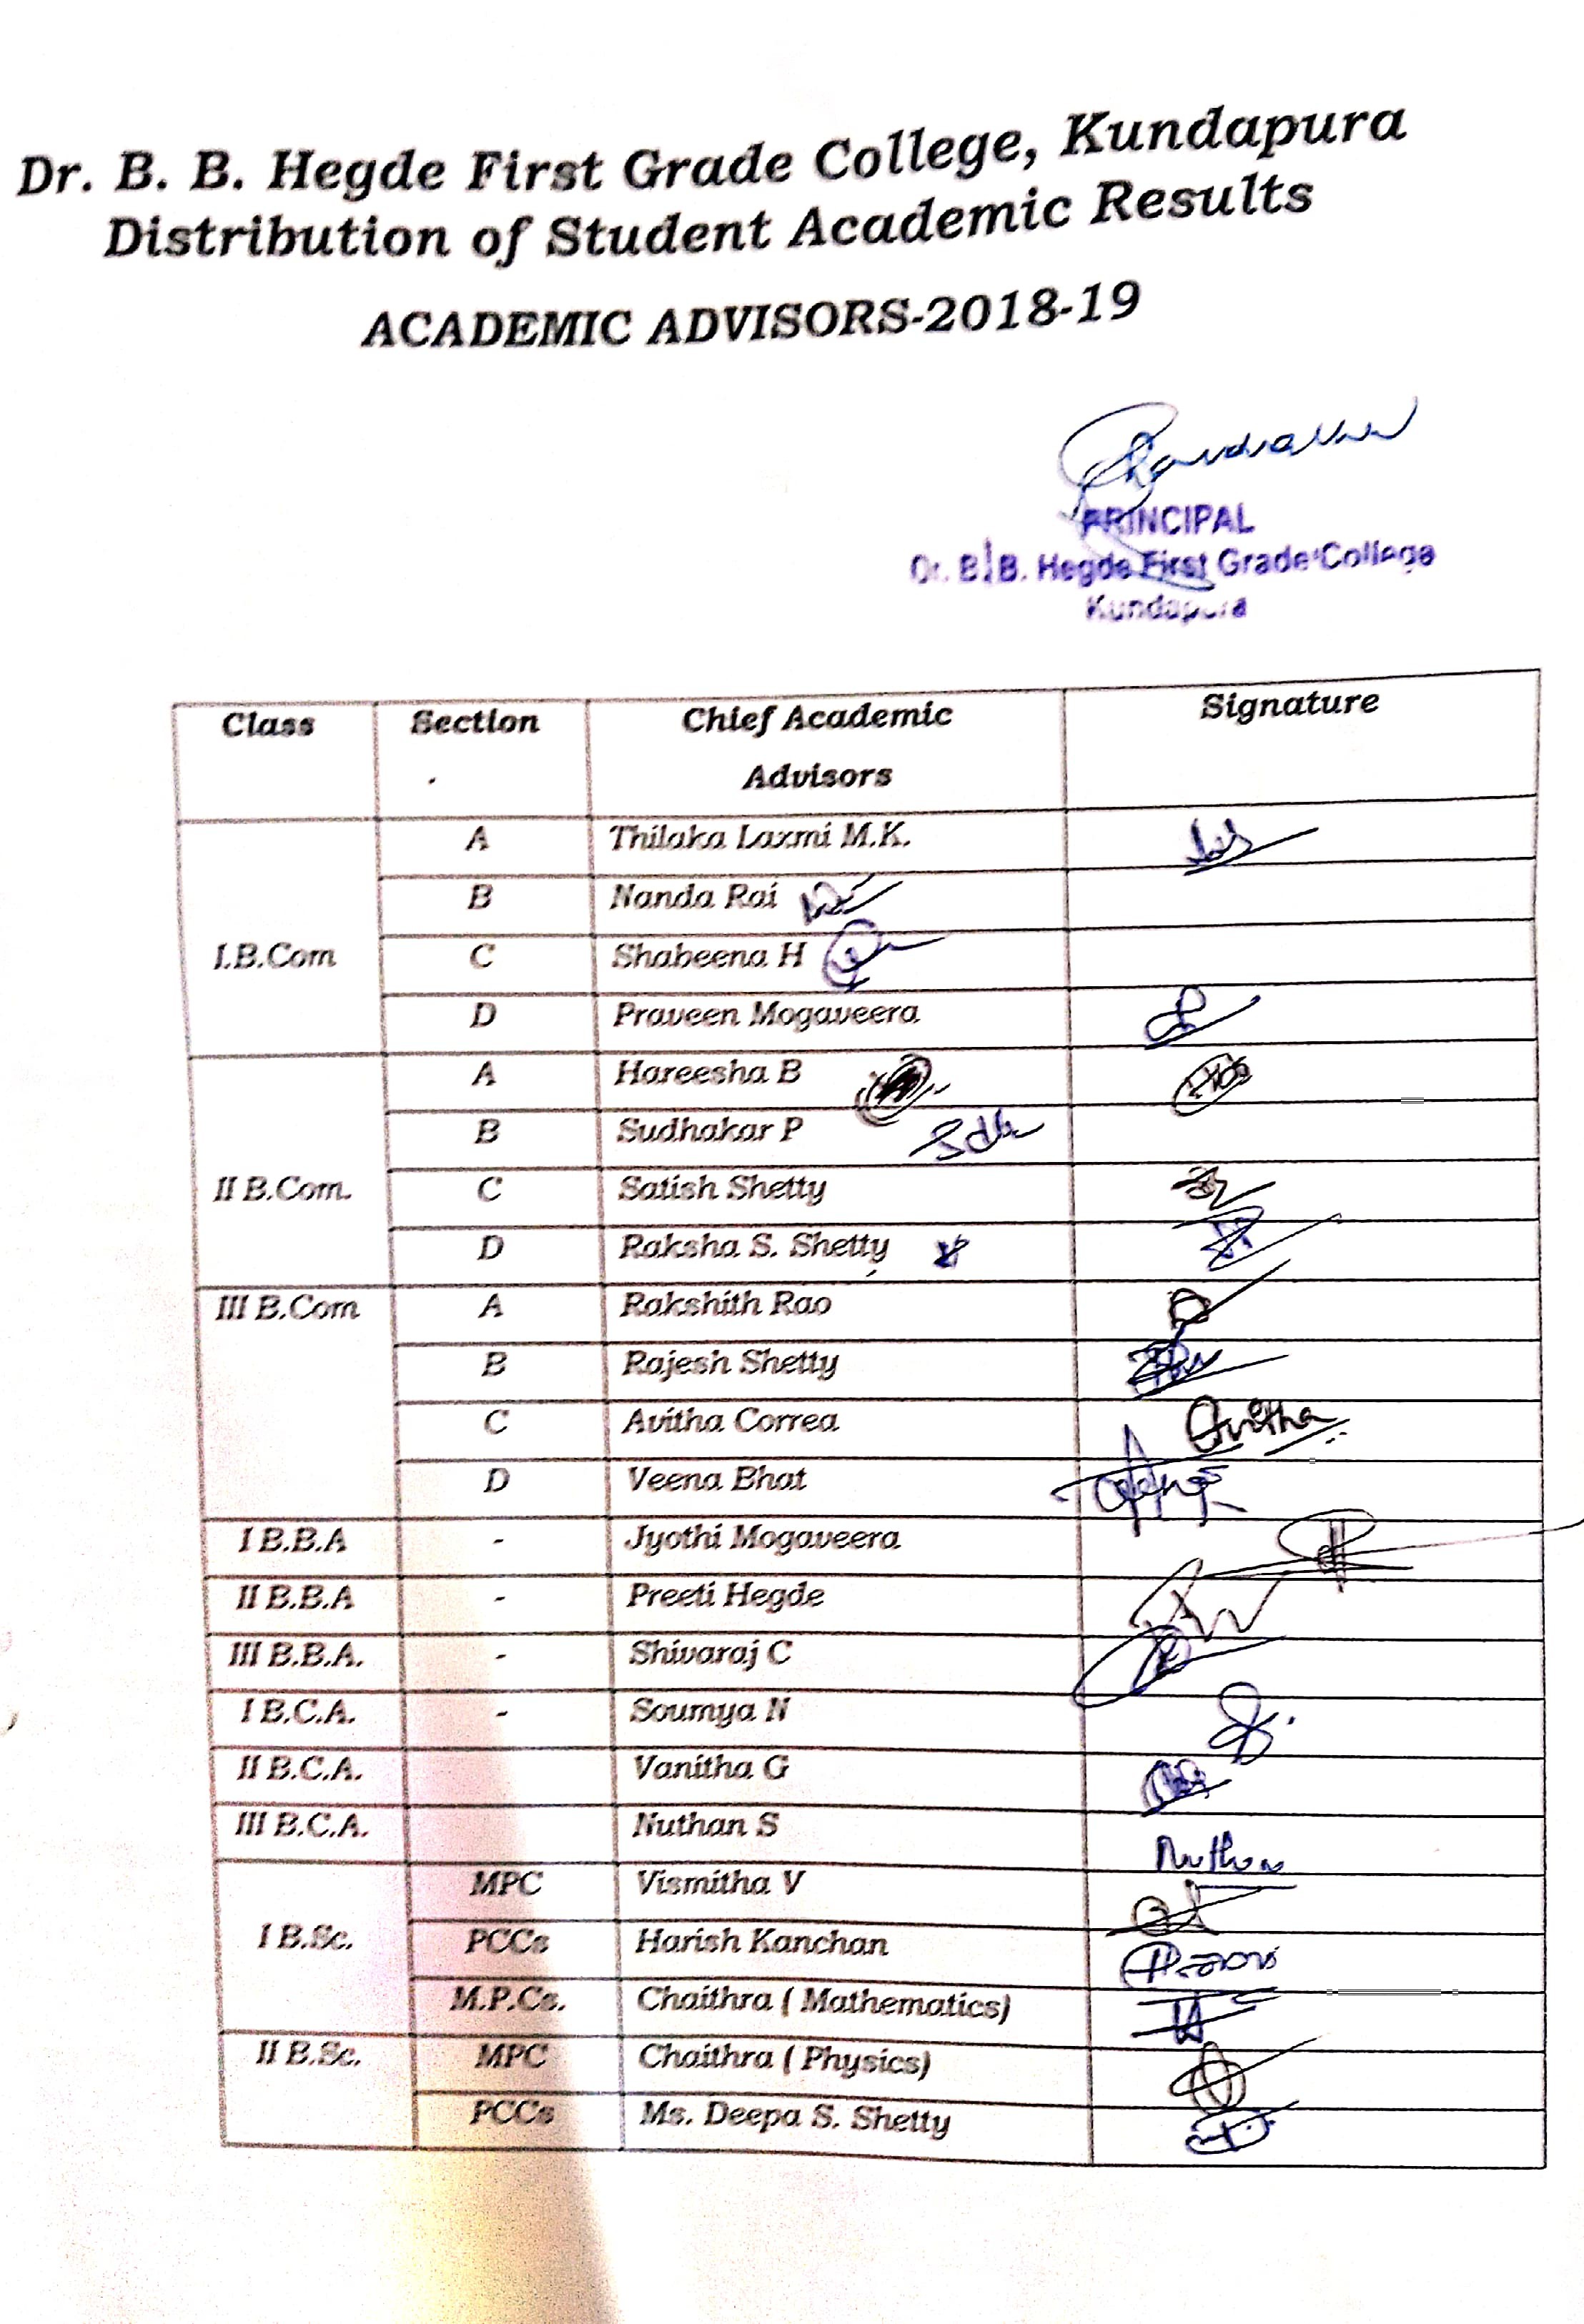 Dr. B. B. Hegde First Grade College, Kundapura
Distribution of Student Academic Results
ACADEMIC ADVISORS-2018-19
PRINCIPAL
Dr. B. B. Hegde First Grade College
Kundapura
Class Section Chief Academic Advisors Signature
I.B.Com
A Thilaka Laxmi M.K.
B Nanda Rai
C Shabeena H
D Praveen Mogaveera
II B.Com.
A Hareesha B
B Sudhakar P
C Satish Shetty
D Raksha S. Shetty
III B.Com A Rakshith Rao
B Rajesh Shetty
C Avitha Correa Avitha
D Veena Bhat
I B.B.A - Jyothi Mogaveera
II B.B.A - Preeti Hegde
III B.B.A. - Shivaraj C
I B.C.A. - Soumya N
II B.C.A. Vanitha G
III B.C.A. Nuthan S Nuthan
I B.Sc.
MPC Vismitha V
PCCs Harish Kanchan
M.P.Cs. Chaithra ( Mathematics)
II B.Sc. MPC Chaithra ( Physics)
PCCs Ms. Deepa S. Shetty